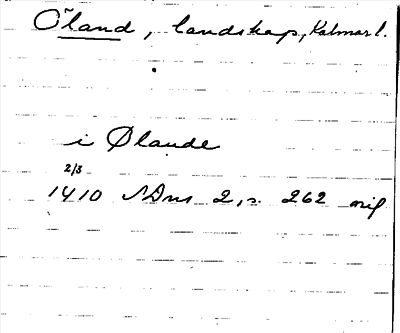 Öland, landskap, Kalmar l.
i Ølande
2/3
1410 SDns 2, s. 262 orig